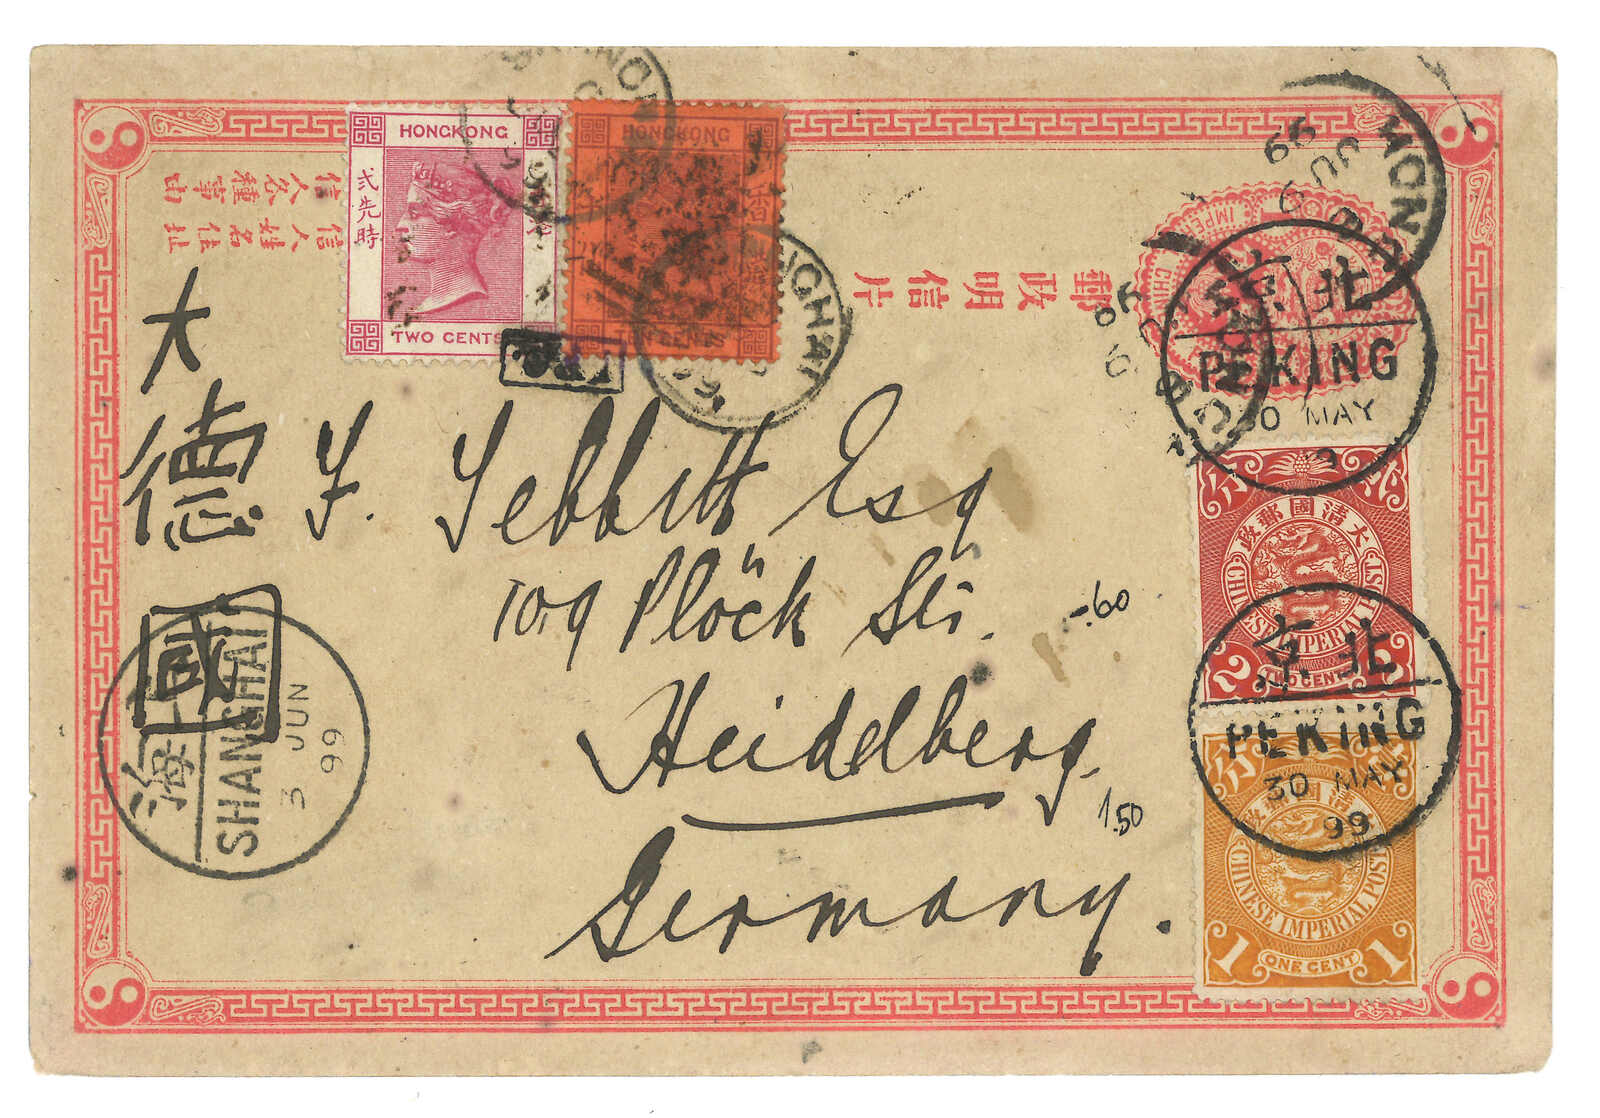 HONGKONG
弍先時
TWO CENTS
HONGKONG
TEN CENTS
SHANGHAI
I.P.O.
郵政明信片
HONG
99
北京
PEKING
30 MAY
大德國
F. Sebbitt Esq
109 Plöck Str.
Heidelberg.
Germany.
-.60
1.50
大清國郵政
CHINESE IMPERIAL POST
2 2
TWO CENTS
北京
PEKING
30 MAY
99
CHINESE IMPERIAL POST
1 1
ONE CENT
上海
SHANGHAI
3 JUN
99